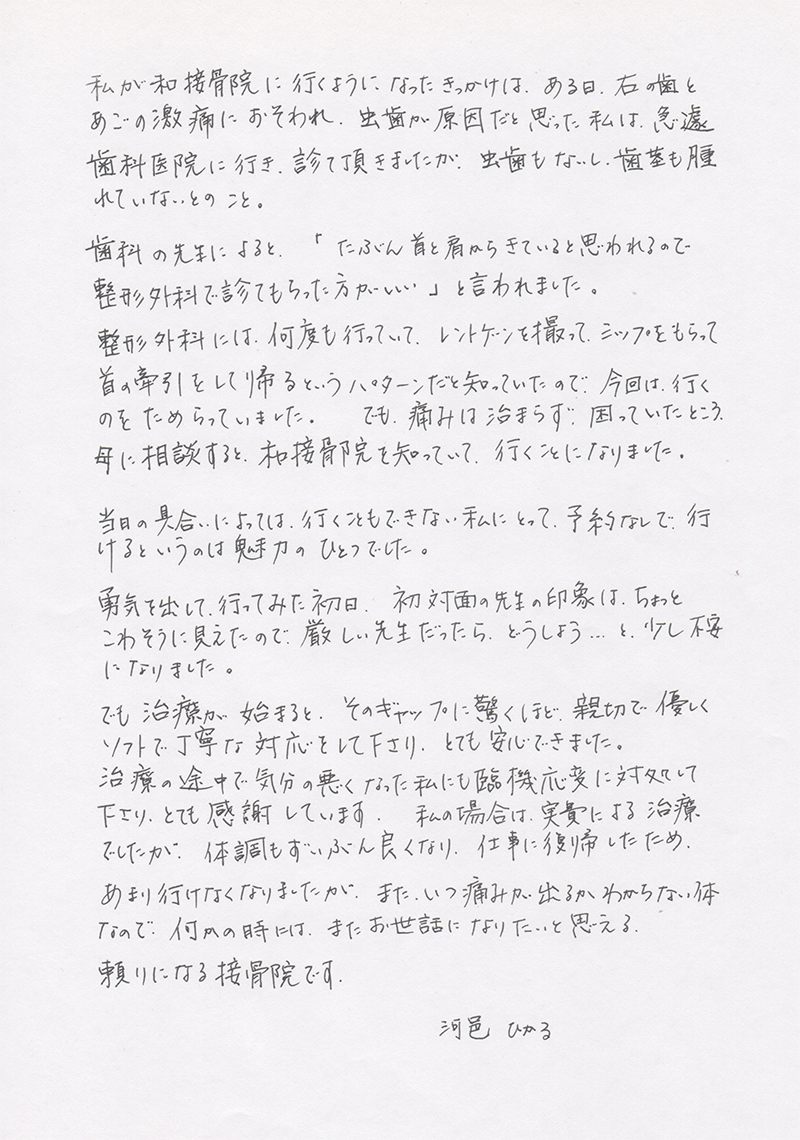 私が和接骨院に行くようになったきっかけは、ある日、右の歯と
あごの激痛におそわれ、虫歯が原因だと思った私は、急遽
歯科医院に行き、診て頂きましたが、虫歯もないし、歯茎も腫
れていないとのこと。
歯科の先生によると、「たぶん首と肩からきていると思われるので
整形外科で診てもらった方がいい」と言われました。
整形外科には、何度も行っていて、レントゲンを撮って、シップをもらって
首の牽引をして帰るというパターンだと知っていたので、今回は、行く
のをためらっていました。 でも、痛みは治まらず、困っていたところ、
母に相談すると、和接骨院を知っていて、行くことになりました。
当日の具合いによっては、行くこともできない私にとって、予約なしで、行
けるというのは魅力のひとつでした。
勇気を出して、行ってみた初日、 初対面の先生の印象は、ちょっと
こわそうに見えたので、厳しい先生だったら、どうしよう…と、少し不安
になりました。
でも治療が始まると、そのギャップに驚くほど、親切で優しく
ソフトで丁寧な対応をして下さり、とても安心できました。
治療の途中で気分の悪くなった私にも臨機応変に対処して
下さり、とても感謝しています。 私の場合は、実費による治療
でしたが、体調もずいぶん良くなり、仕事に復帰したため、
あまり行けなくなりましたが、また、いつ痛みが出るかわからない体
なので、何かの時には、またお世話になりたいと思える、
頼りになる接骨院です。
河邑 ひかる